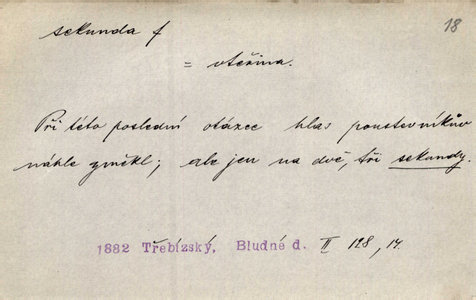 18
sekunda f
= vteřina.
Při této poslední otázce hlas poustevníkův
náhle změkl; ale jen na dvě, tři sekundy.
1882 Třebízský, Bludné d. II 128, 14.